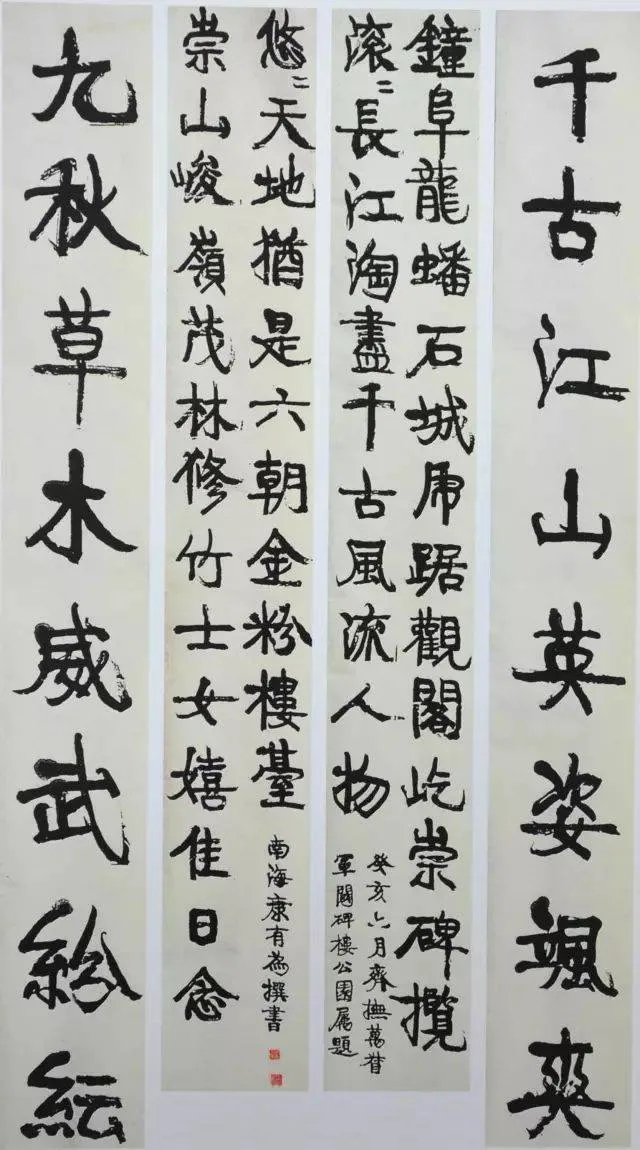 千古江山英姿颯爽
鐘阜龍蟠石城虎踞觀閣屹崇碑攬
滾〻長江淘盡千古風流人物
癸亥六月齊撫萬督
軍閣碑樓公園屬題
崇山峻嶺茂林修竹士女嬉佳日念
悠〻天地猶是六朝金粉樓臺
南海康有為撰書
九秋草木威武紛紜